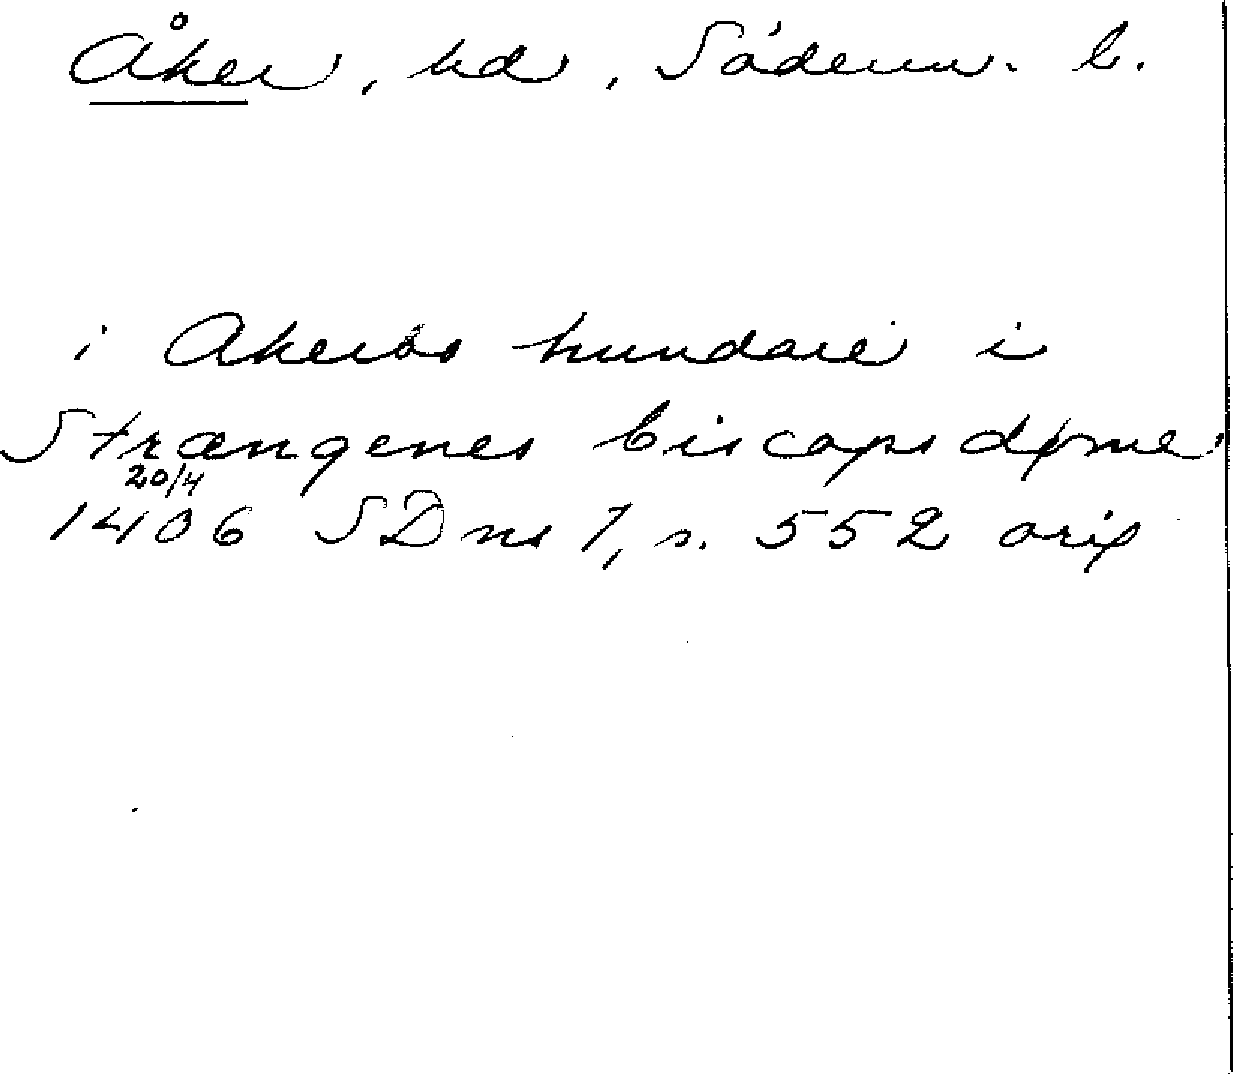 Åker, hd, Söderm. l.
i Akerbo hundare i
Strængenes biscops døme
20/4
1406 SDns 1, s. 552 orig